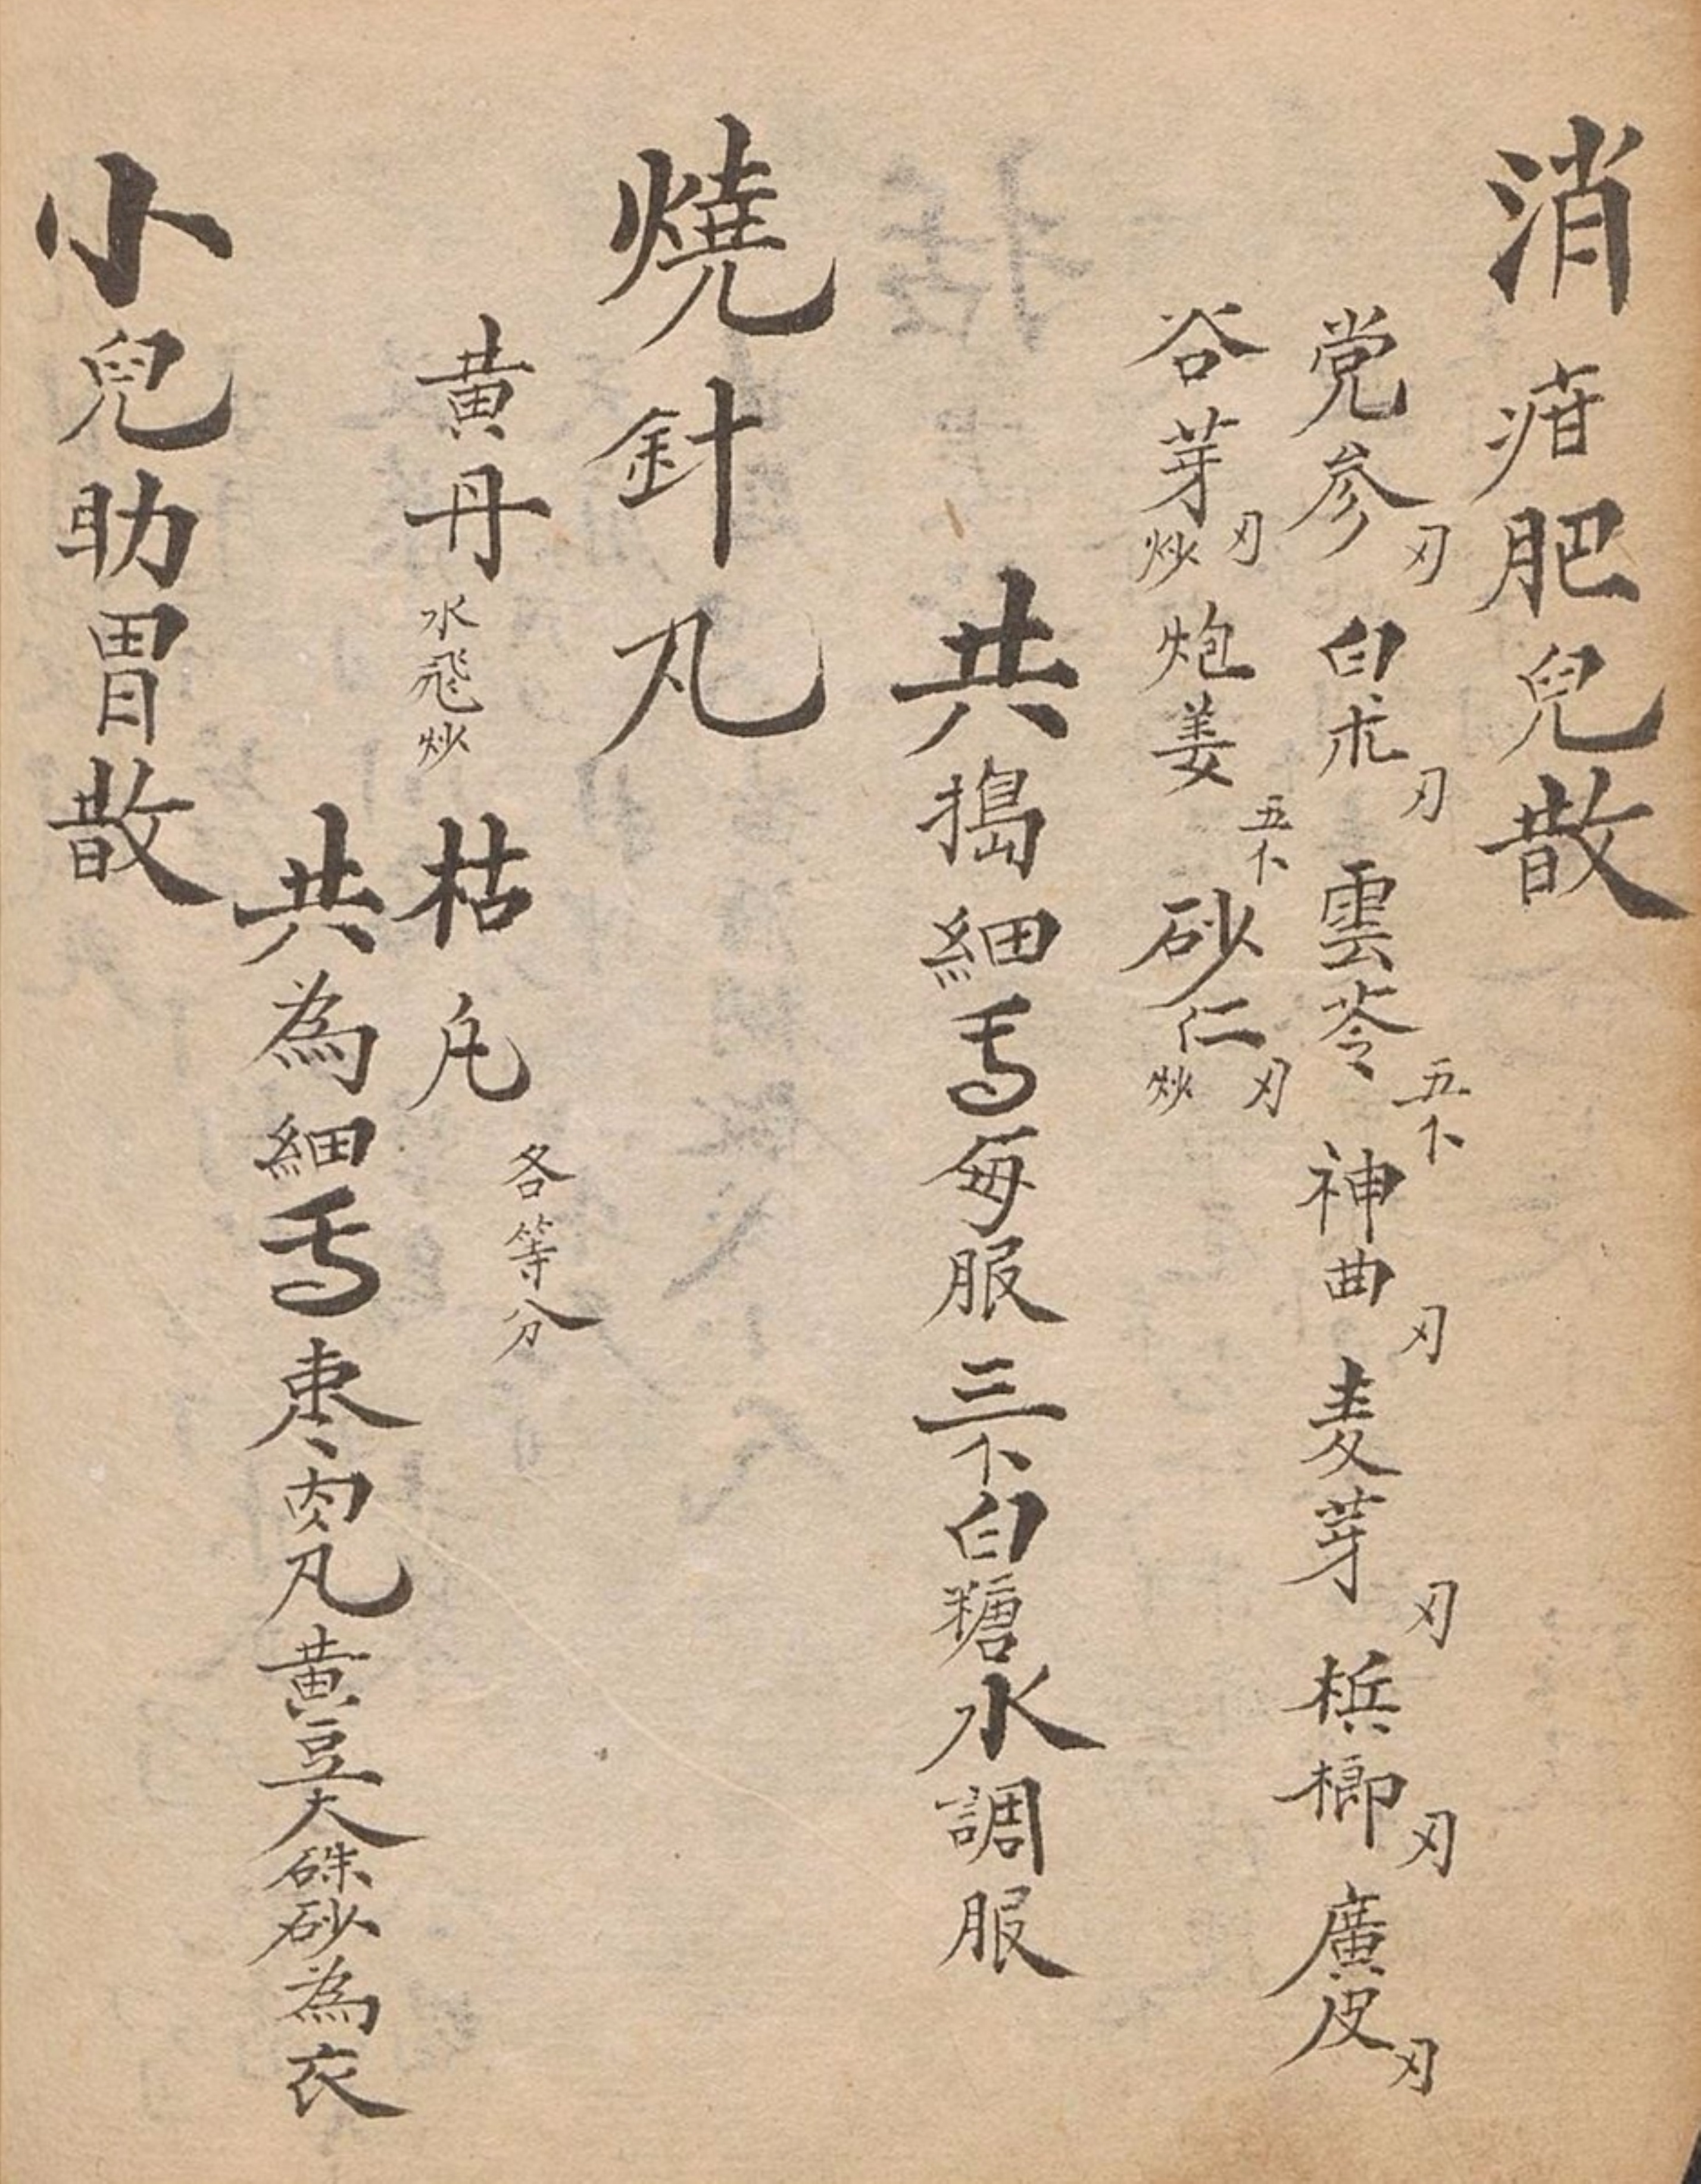 消疳肥兒散
党参刃白朮刃雲苓五卜神曲刃麦芽刃梹榔刃廣皮刃
谷芽炒刃炮姜五卜砂仁炒刃
共搗細每服三卜白糖水調服
燒針丸
黄丹水飛炒枯各等分
共為細棗肉丸黄豆大硃砂為衣
小兒助胃散